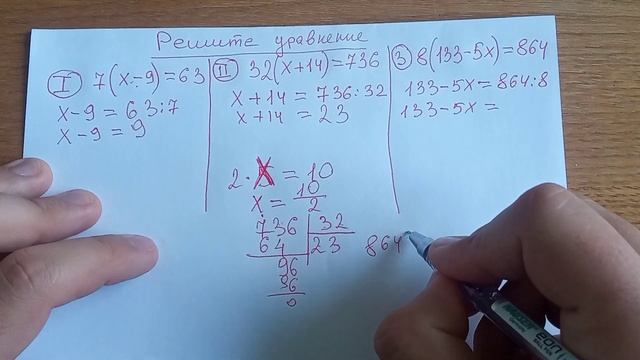 Решите уравнение
I 7(x-9)=63
x-9=63:7
x-9=9
II 32(x+14)=736
x+14=736:32
x+14=23
3 8(133-5x)=864
133-5x=864:8
133-5x=
2·X=10
x=10/2
736 32
64 23
96
96
0
864